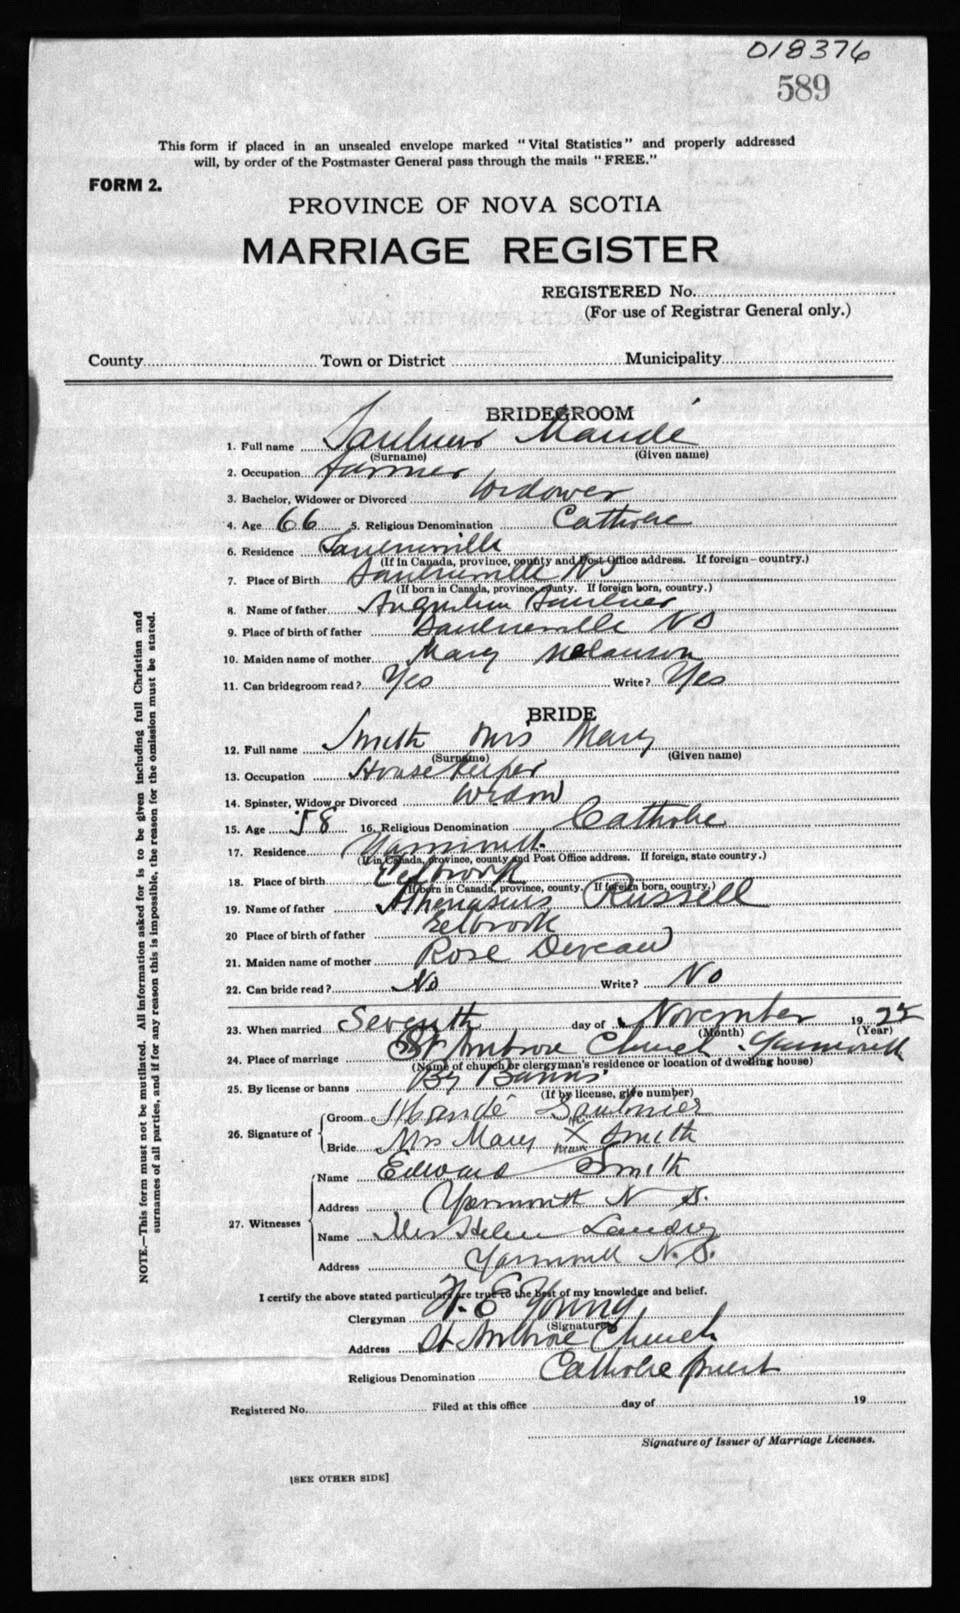 018376
589
This form if placed in an unsealed envelope marked "Vital Statistics" and properly addressed
will, by order of the Postmaster General pass through the mails "FREE."
FORM 2.
PROVINCE OF NOVA SCOTIA
MARRIAGE REGISTER
REGISTERED No.
(For use of Registrar General only.)
County Town or District Municipality
BRIDEGROOM
1. Full name Saulnier Mandé
(Surname) (Given name)
2. Occupation farmer
3. Bachelor, Widower or Divorced Widower
4. Age 66 5. Religious Denomination Catholic
6. Residence Saulnierville
(If in Canada, province, county and Post Office address. If foreign—country.)
7. Place of Birth Saulnierville NS
(If born in Canada, province, county. If foreign born, country.)
8. Name of father Augustin Saulnier
9. Place of birth of father Saulnierville NS
10. Maiden name of mother Mary Melanson
11. Can bridegroom read? Yes Write? Yes
BRIDE
12. Full name Smith Mrs Mary
(Surname) (Given name)
13. Occupation House Keeper
14. Spinster, Widow or Divorced Widow
15. Age 58 16. Religious Denomination Catholic
17. Residence Yarmouth
(If in Canada, province, county and Post Office address. If foreign, state country.)
18. Place of birth Eelbrook
(If born in Canada, province, county. If foreign born, country.)
19. Name of father Athenasius Russell
20 Place of birth of father Eelbrook
21. Maiden name of mother Rose Deveau
22. Can bride read? No Write? No
23. When married Seventh day of November 1922
(Month) (Year)
24. Place of marriage St Ambrose Church Yarmouth
(Name of church or clergyman's residence or location of dwelling house)
25. By license or banns By Banns
(If by license, give number)
26. Signature of Groom Mandé Saulnier
Bride Mrs Mary X Smith
27. Witnesses Name Edward Smith
Address Yarmouth N S.
Name Mrs Helen Landry
Address Yarmouth N.S.
I certify the above stated particulars are true to the best of my knowledge and belief.
Clergyman W. E. Young
(Signature)
Address St Ambrose Church
Religious Denomination Catholic priest
Registered No. Filed at this office day of 19
Signature of Issuer of Marriage Licenses.
[SEE OTHER SIDE]
NOTE.—This form must not be mutilated. All information asked for is to be given including full Christian and
surnames of all parties, and if for any reason this is impossible, the reason for the omission must be stated.